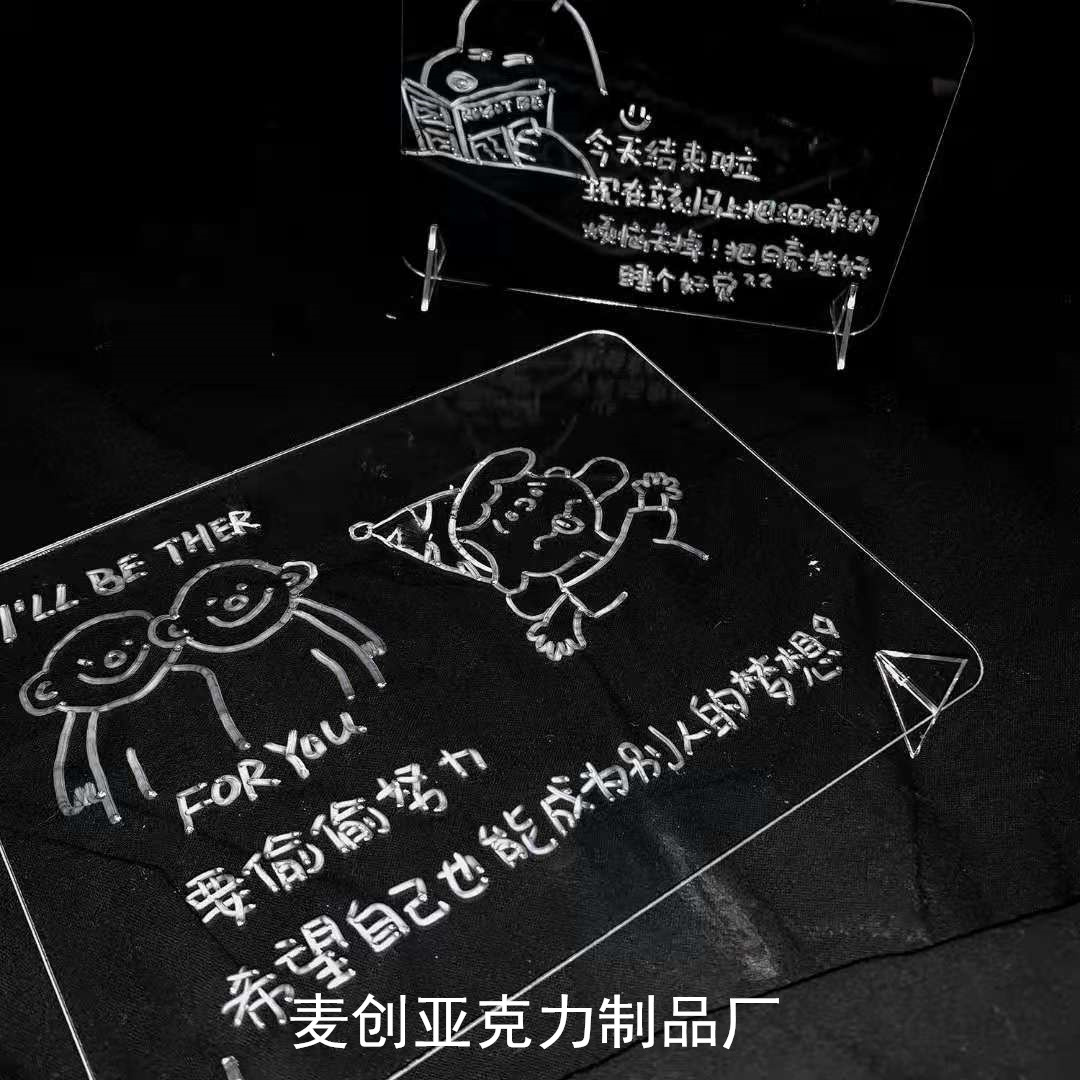 今天结束啦
现在立刻马上把细碎的
烦恼关掉！把月亮挂好
睡个好觉??
I'LL BE THER
FOR YOU
要偷偷努力
希望自己也能成为别人的梦想
麦创亚克力制品厂